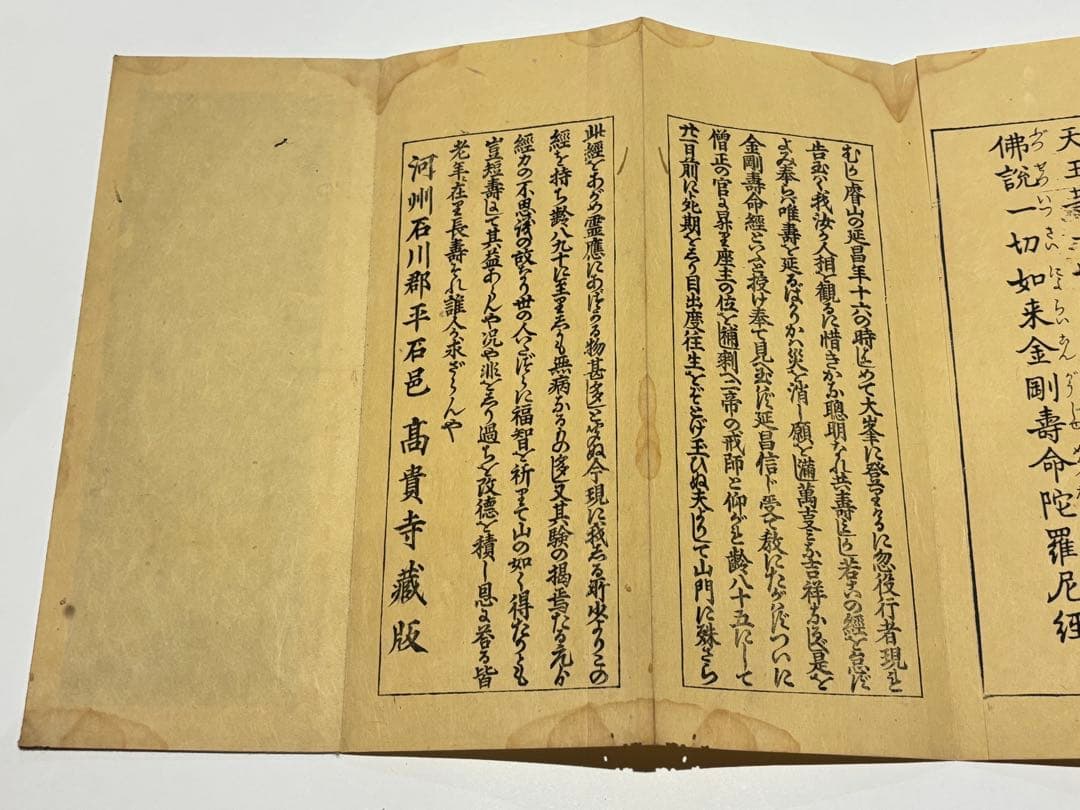 天王壽
佛說一切如来金剛壽命陀羅尼經
ぶつ せつ いつ さい によ らい こん がう
むかし睿山の延昌年十六の時はじめて大峯に登りけるに忽役行者現れ
告玉はく我汝が人相を觀るに惜きかな聰明なれ共壽みじかし若この經を怠ず
よみ奉らば唯壽を延るばかりかは災を消し願を滿萬支みな吉祥なるべし是を
金剛壽命經といふと授け奉て見玉はず延昌信じ受て教にたがはずついに
僧正の官に昇り座主の位を補剩へ二帝の戒師と仰がれ齢八十五にして
廿一日前に死期をしり目出度往生をとげ玉ひぬ夫よりして山門に殊さら
此經をあがめ靈應にあづかる物甚多しとなむ今現に我しる所少よりこの
經を持ち齢八九十に至りしかも無病なるもの多し又其驗の揭焉たる元より
經力の不思議の故なり世の人いたづらに福智を祈りて山の如く得たりとも
豈短壽にして其益あらんや況や非をしり過ちを改德を積し恩に答る皆
老年に在り長壽それ誰人か求ざらんや
河州石川郡平石邑 高貴寺藏版